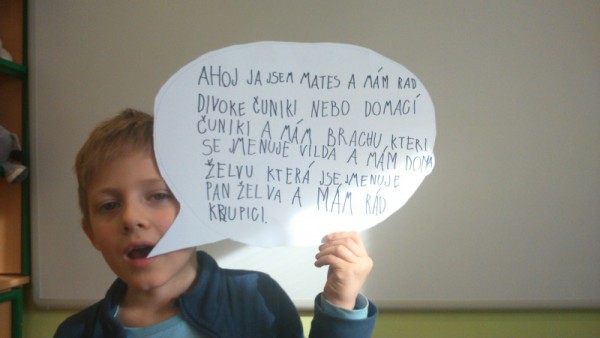 AHOJ JA JSEM MATES A MÁM RAD
DIVOKE ČUNIKI NEBO DOMACÍ
ČUNIKI A MÁM BRACHU KTERI
SE JMENUJE VILDA A MÁM DOMA
ŽELVU KTERÁ JSE JMENUJE
PAN ŽELVA A MÁM RÁD
KRUPICI.